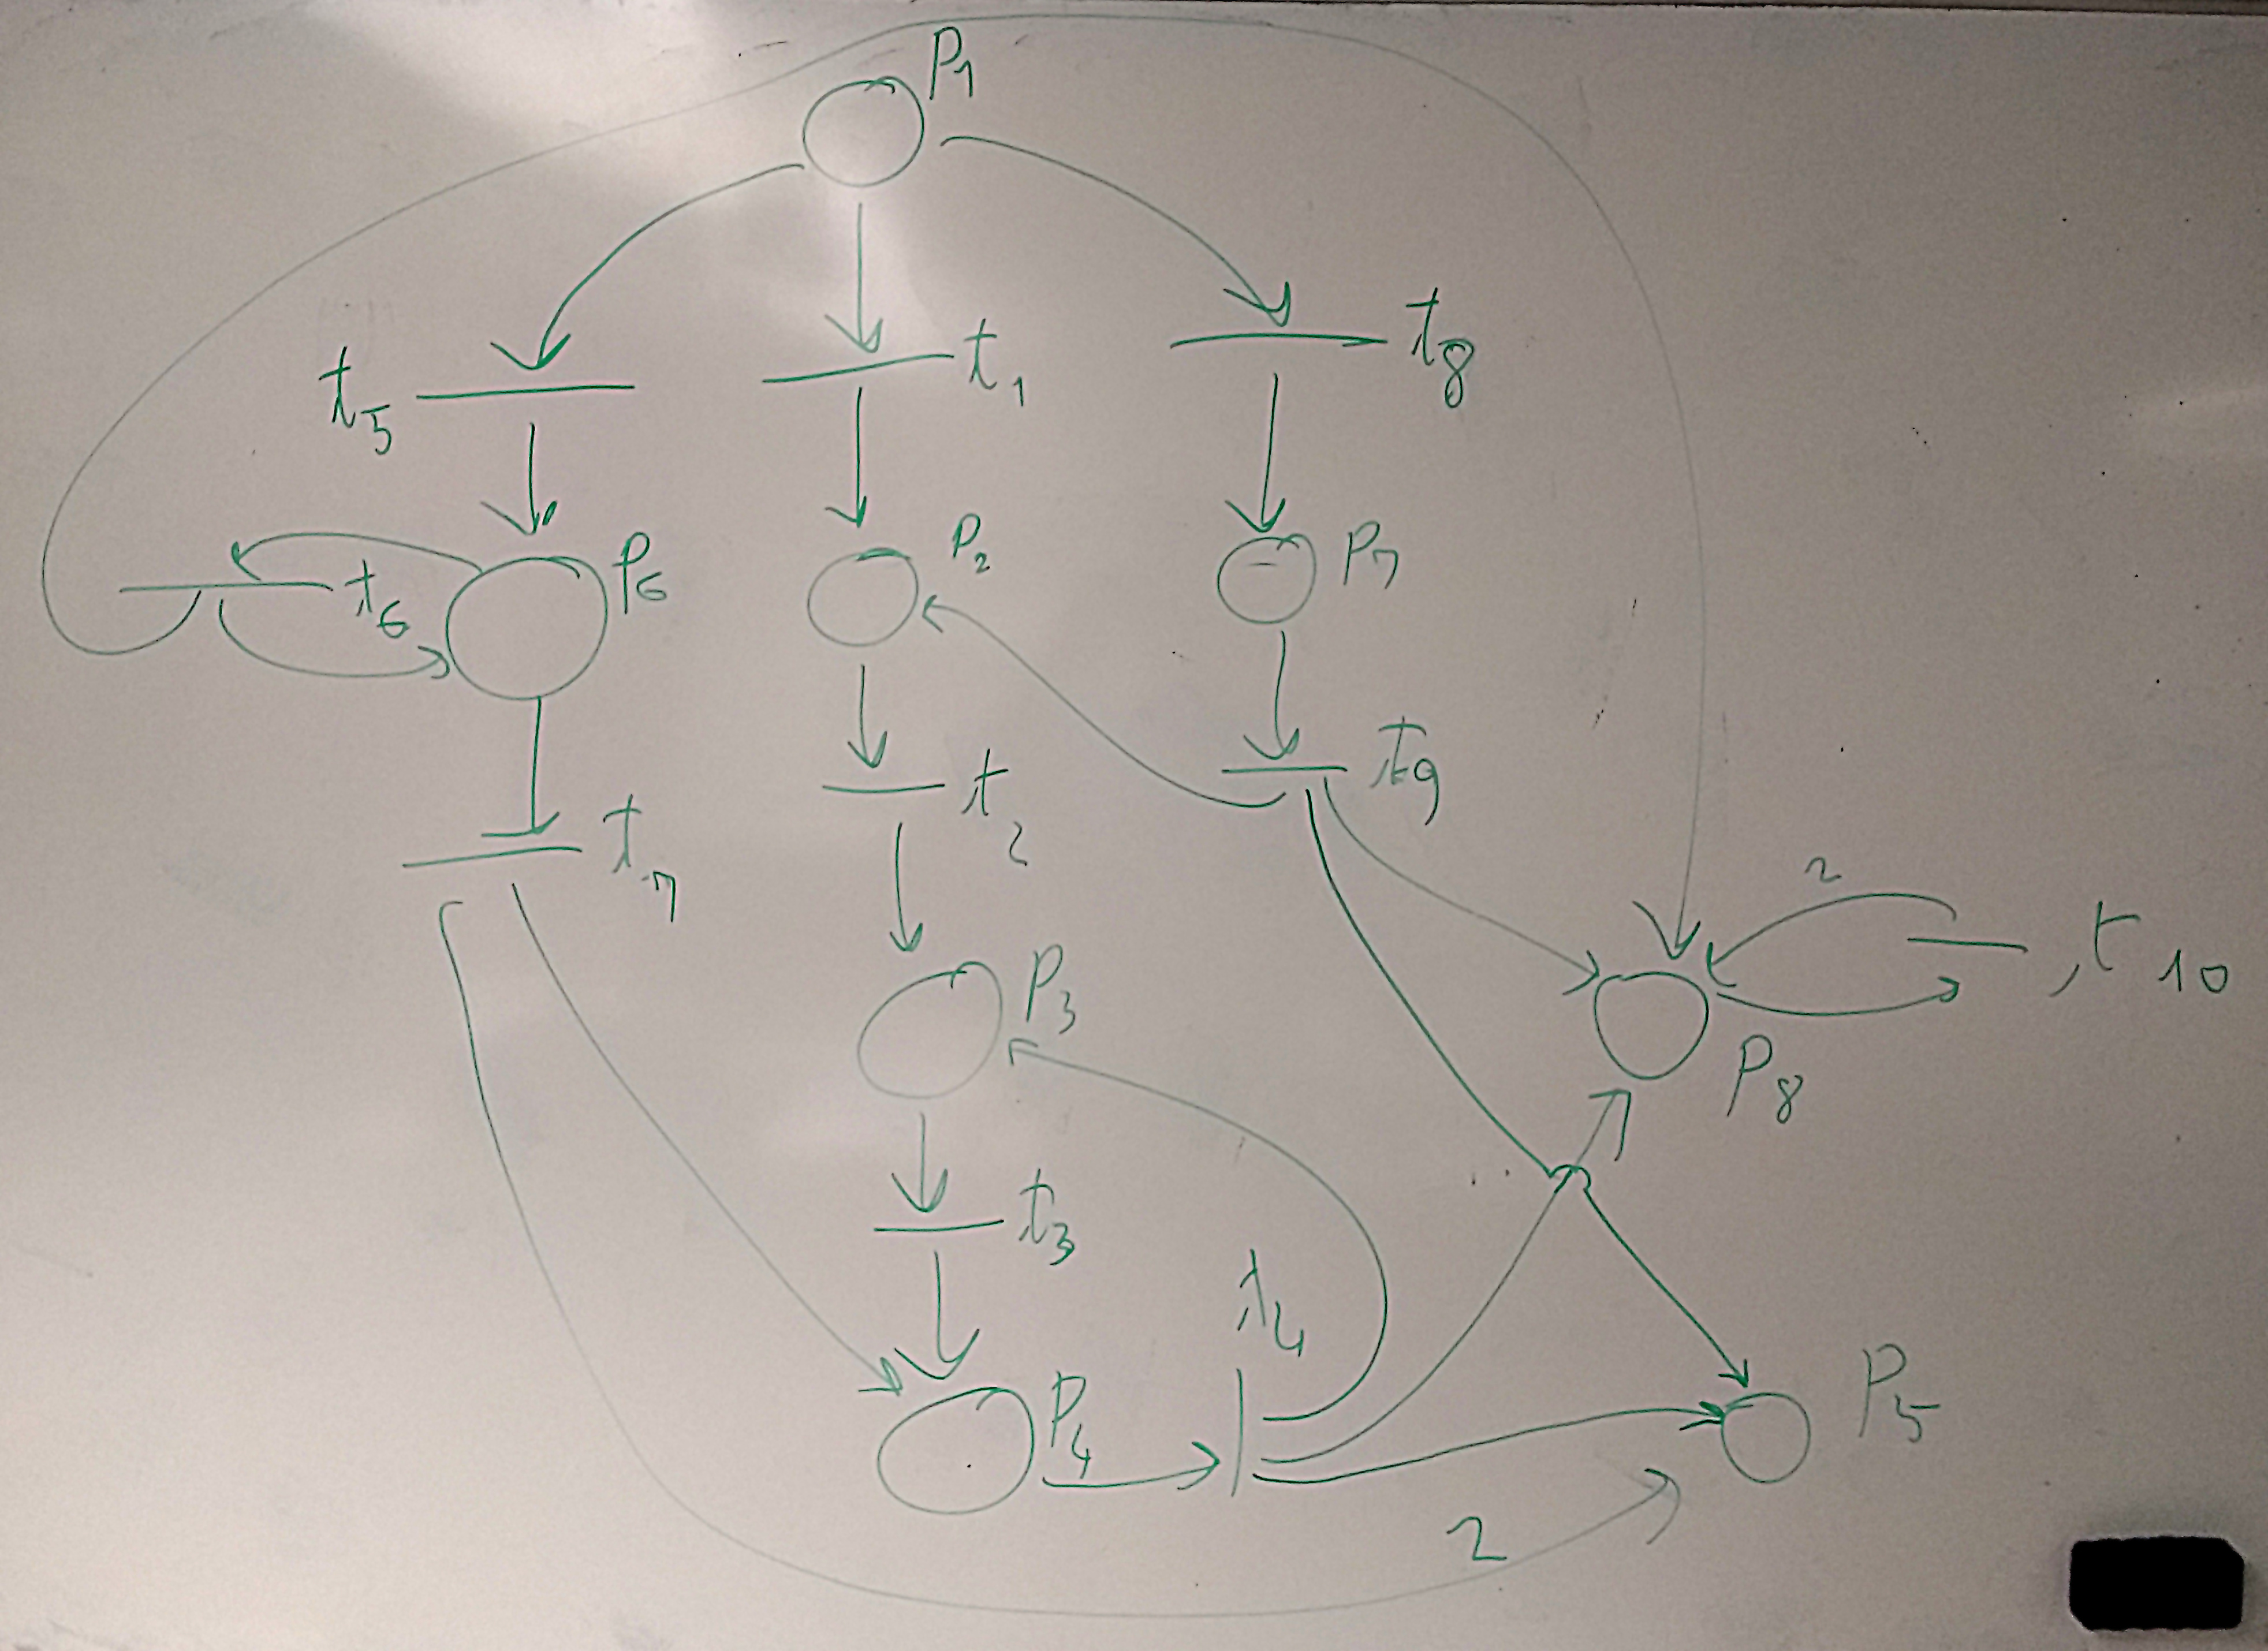 P₁
t₅
t₁
t₈
t₆
P₆
P₂
P₇
t₇
t₂
t₉
2
t₁₀
P₃
P₈
t₃
t₄
P₄
P₅
2